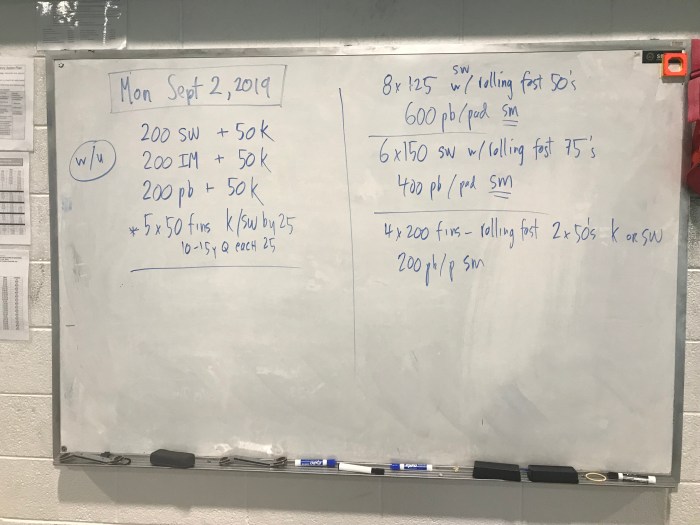 Mon Sept 2, 2019
w/u
200 SW + 50k
200 IM + 50k
200 pb + 50k
* 5x50 fins k/sw by 25
10-15y Q each 25
8x125 sw w/ rolling fast 50's
600 pb/pad sm
6x150 sw w/ rolling fast 75's
400 pb/pad sm
4x200 fins - rolling fast 2x50's k or sw
200 pb/p sm